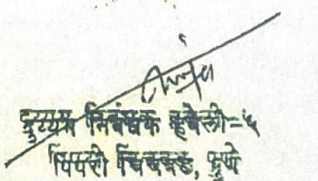 दुय्यम निबंधक हवेली-५
पिंपरी चिंचवड, पुणे